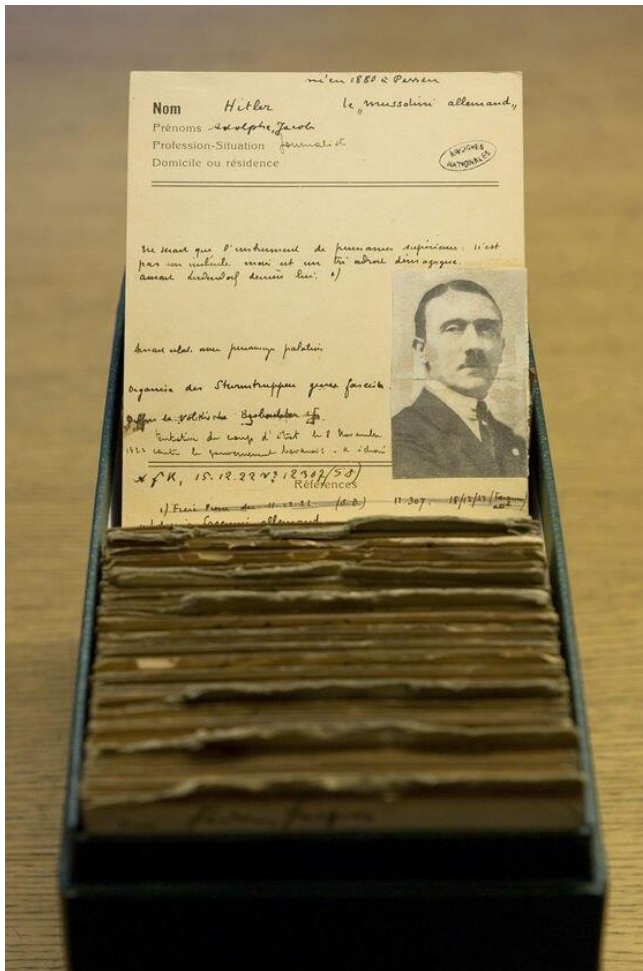 né en 1880 à Passau
Nom Hitler le „mussolini allemand„
Prénoms Adolphe, Jacob
Profession-Situation Journaliste
Domicile ou résidence
ARCHIVES
NATIONALES
Ne serait que l'instrument de puissances supérieures : n'est
pas un imbécile mais est un très adroit démagogue.
aurait Ludendorf derrière lui.
Organise des Sturmtruppen genre fasciste.
Völkische Beobachter
Tentative de coup d'état le 8 Novembre
1923 contre le gouvernement bavarois - a échoué
15.12.22 n° 12307
Références
1) Freie Presse du 11.12.22 12.307. 18/12/22
fascisme allemand